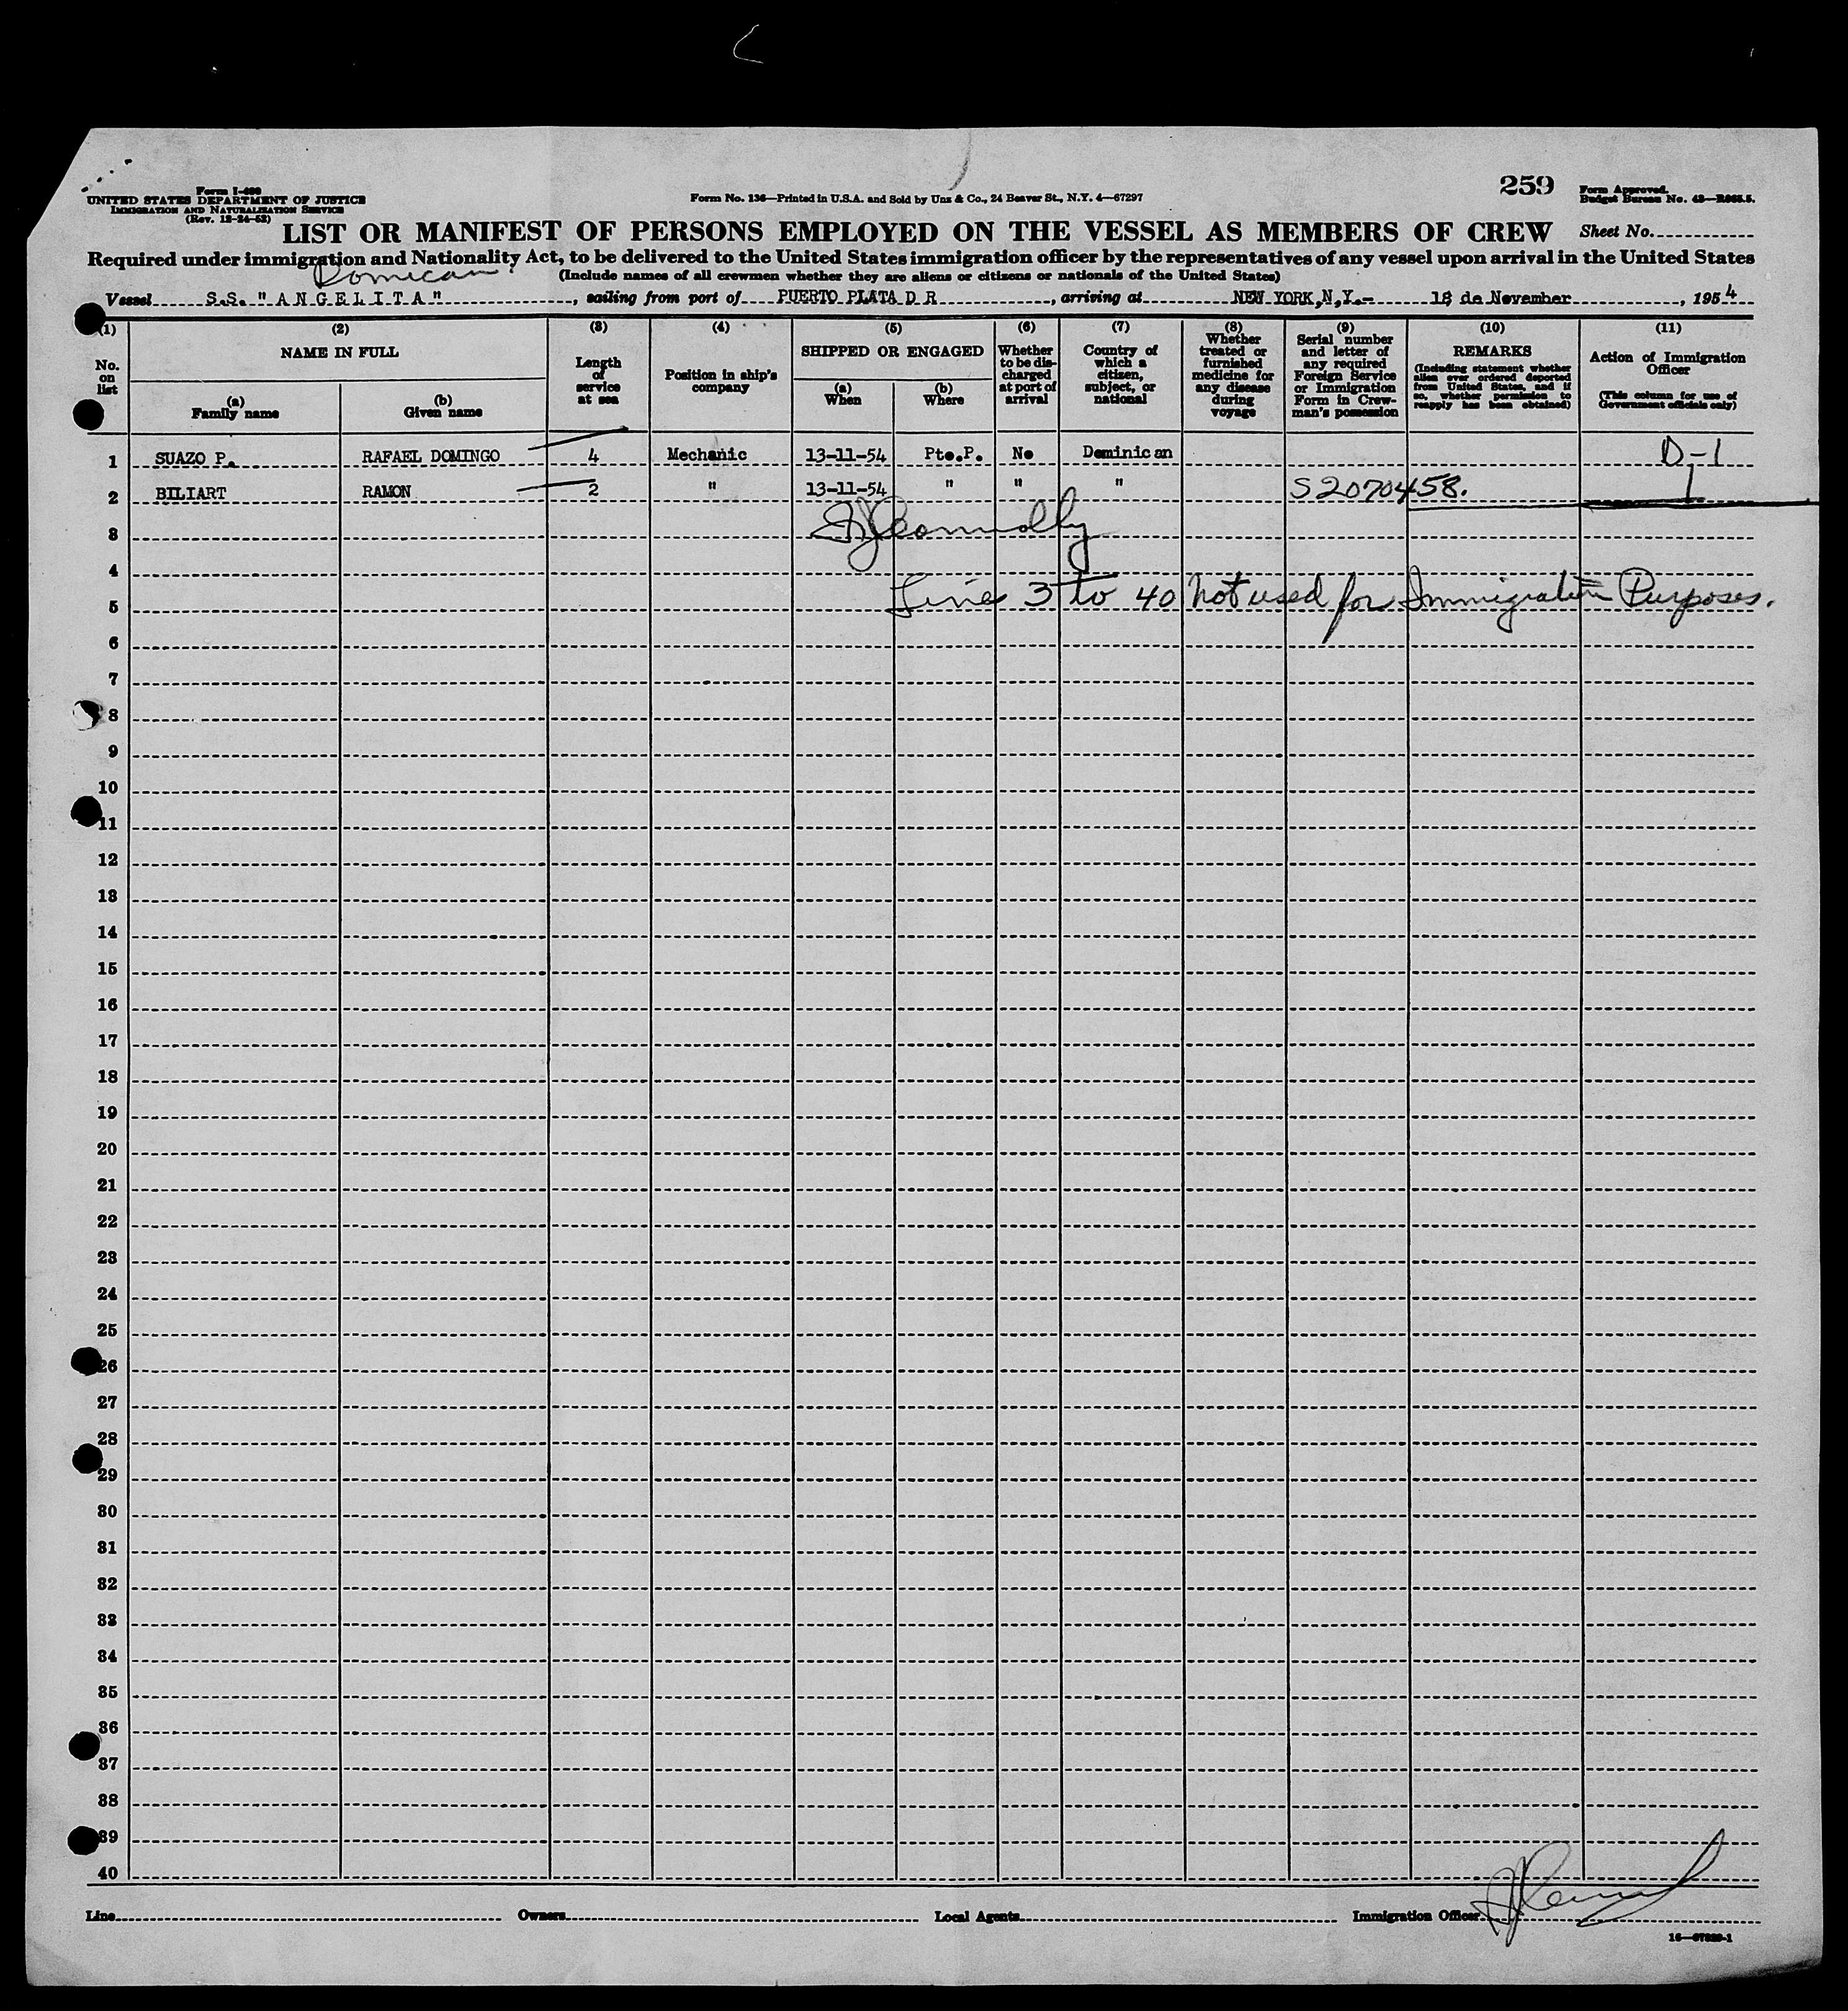 259
Form I-480
UNITED STATES DEPARTMENT OF JUSTICE
IMMIGRATION AND NATURALIZATION SERVICE
(Rev. 12-24-52)
Form No. 136—Printed in U.S.A. and Sold by Unz & Co., 24 Beaver St., N.Y. 4—67297
Form Approved.
Budget Bureau No. 43—R065.5.
LIST OR MANIFEST OF PERSONS EMPLOYED ON THE VESSEL AS MEMBERS OF CREW
Sheet No.
Required under immigration and Nationality Act, to be delivered to the United States immigration officer by the representatives of any vessel upon arrival in the United States
Domican
(Include names of all crewmen whether they are aliens or citizens or nationals of the United States)
Vessel S.S. "ANGELITA", sailing from port of PUERTO PLATA D R, arriving at NEW YORK,N,Y.- 18 de November, 1954
(1) (2) (3) (4) (5) (6) (7) (8) (9) (10) (11)
No. on list
NAME IN FULL
(a) Family name
(b) Given name
Length of service at sea
Position in ship's company
SHIPPED OR ENGAGED
(a) When
(b) Where
Whether to be discharged at port of arrival
Country of which a citizen, subject, or national
Whether treated or furnished medicine for any disease during voyage
Serial number and letter of any required Foreign Service or Immigration Form in Crewman's possession
REMARKS
(Including statement whether alien ever ordered deported from United States, and if so, whether permission to reapply has been obtained)
Action of Immigration Officer
(This column for use of Government officials only)
1 SUAZO P. RAFAEL DOMINGO 4 Mechanic 13-11-54 Pto.P. No Dominican D-1
2 BILIART RAMON 2 " 13-11-54 " " " S2070458.
3 Connolly
4
5 Line 3 to 40 not used for Immigration Purposes.
6
7
8
9
10
11
12
13
14
15
16
17
18
19
20
21
22
23
24
25
26
27
28
29
30
31
32
33
34
35
36
37
38
39
40
Line Owners Local Agents Immigration Officer